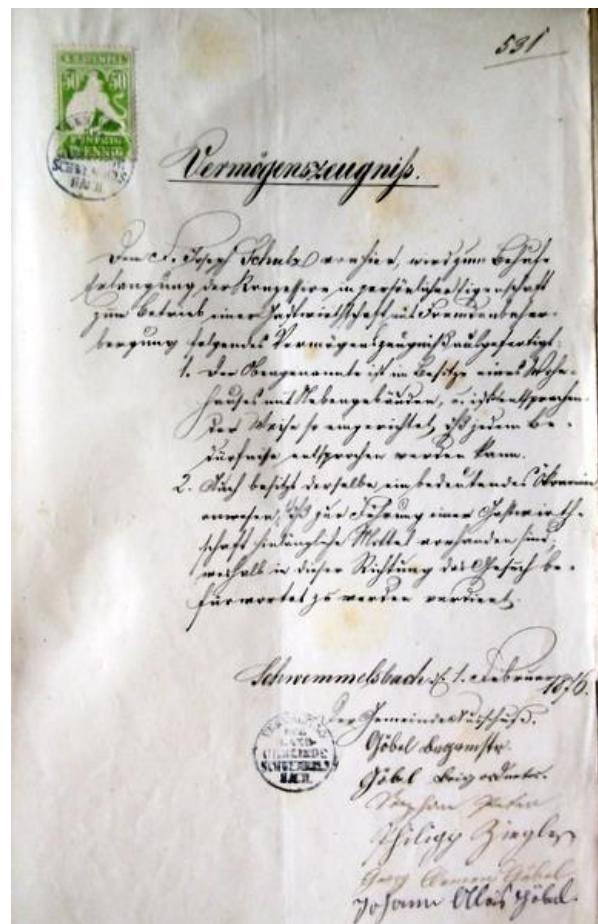 531
50 50
FÜNFZIG
PFENNIG
Vermögenszeugniß.
Dem F. Joseph Schulz von hier, wird zum Behufe
Erlangung der Konzession in persönlicher Eigenschaft
zum Betrieb einer Gastwirthschaft mit Fremdenbeher-
bergung folgendes Vermögenszeugniß ausgefertigt:
1. Der Obengenannte ist im Besitze eines Wohn-
hauses mit Nebengebäuden, u. ist entsprechen-
der Weise so eingerichtet, daß jedem Be-
dürfnisse entsprochen werden kann.
2. Auch besitzt derselbe ein bedeutendes Ökonomie-
anwesen, daß zur Führung einer Gastwirth-
schaft hinlängliche Mittel vorhanden sind,
weshalb in dieser Richtung das Gesuch be-
fürwortet zu werden verdient.
Schwemmelsbach 1. Februar 1876.
Der Gemeindeausschuß.
VERWALTUNG
DER
LAND-
GEMEINDE
SCHWEMMELS
BACH
Göbel Bürgermstr.
Göbel Beigeordneter.
Stephan
Philipp Ziegler
Georg Göbel
Johann Alois Göbel